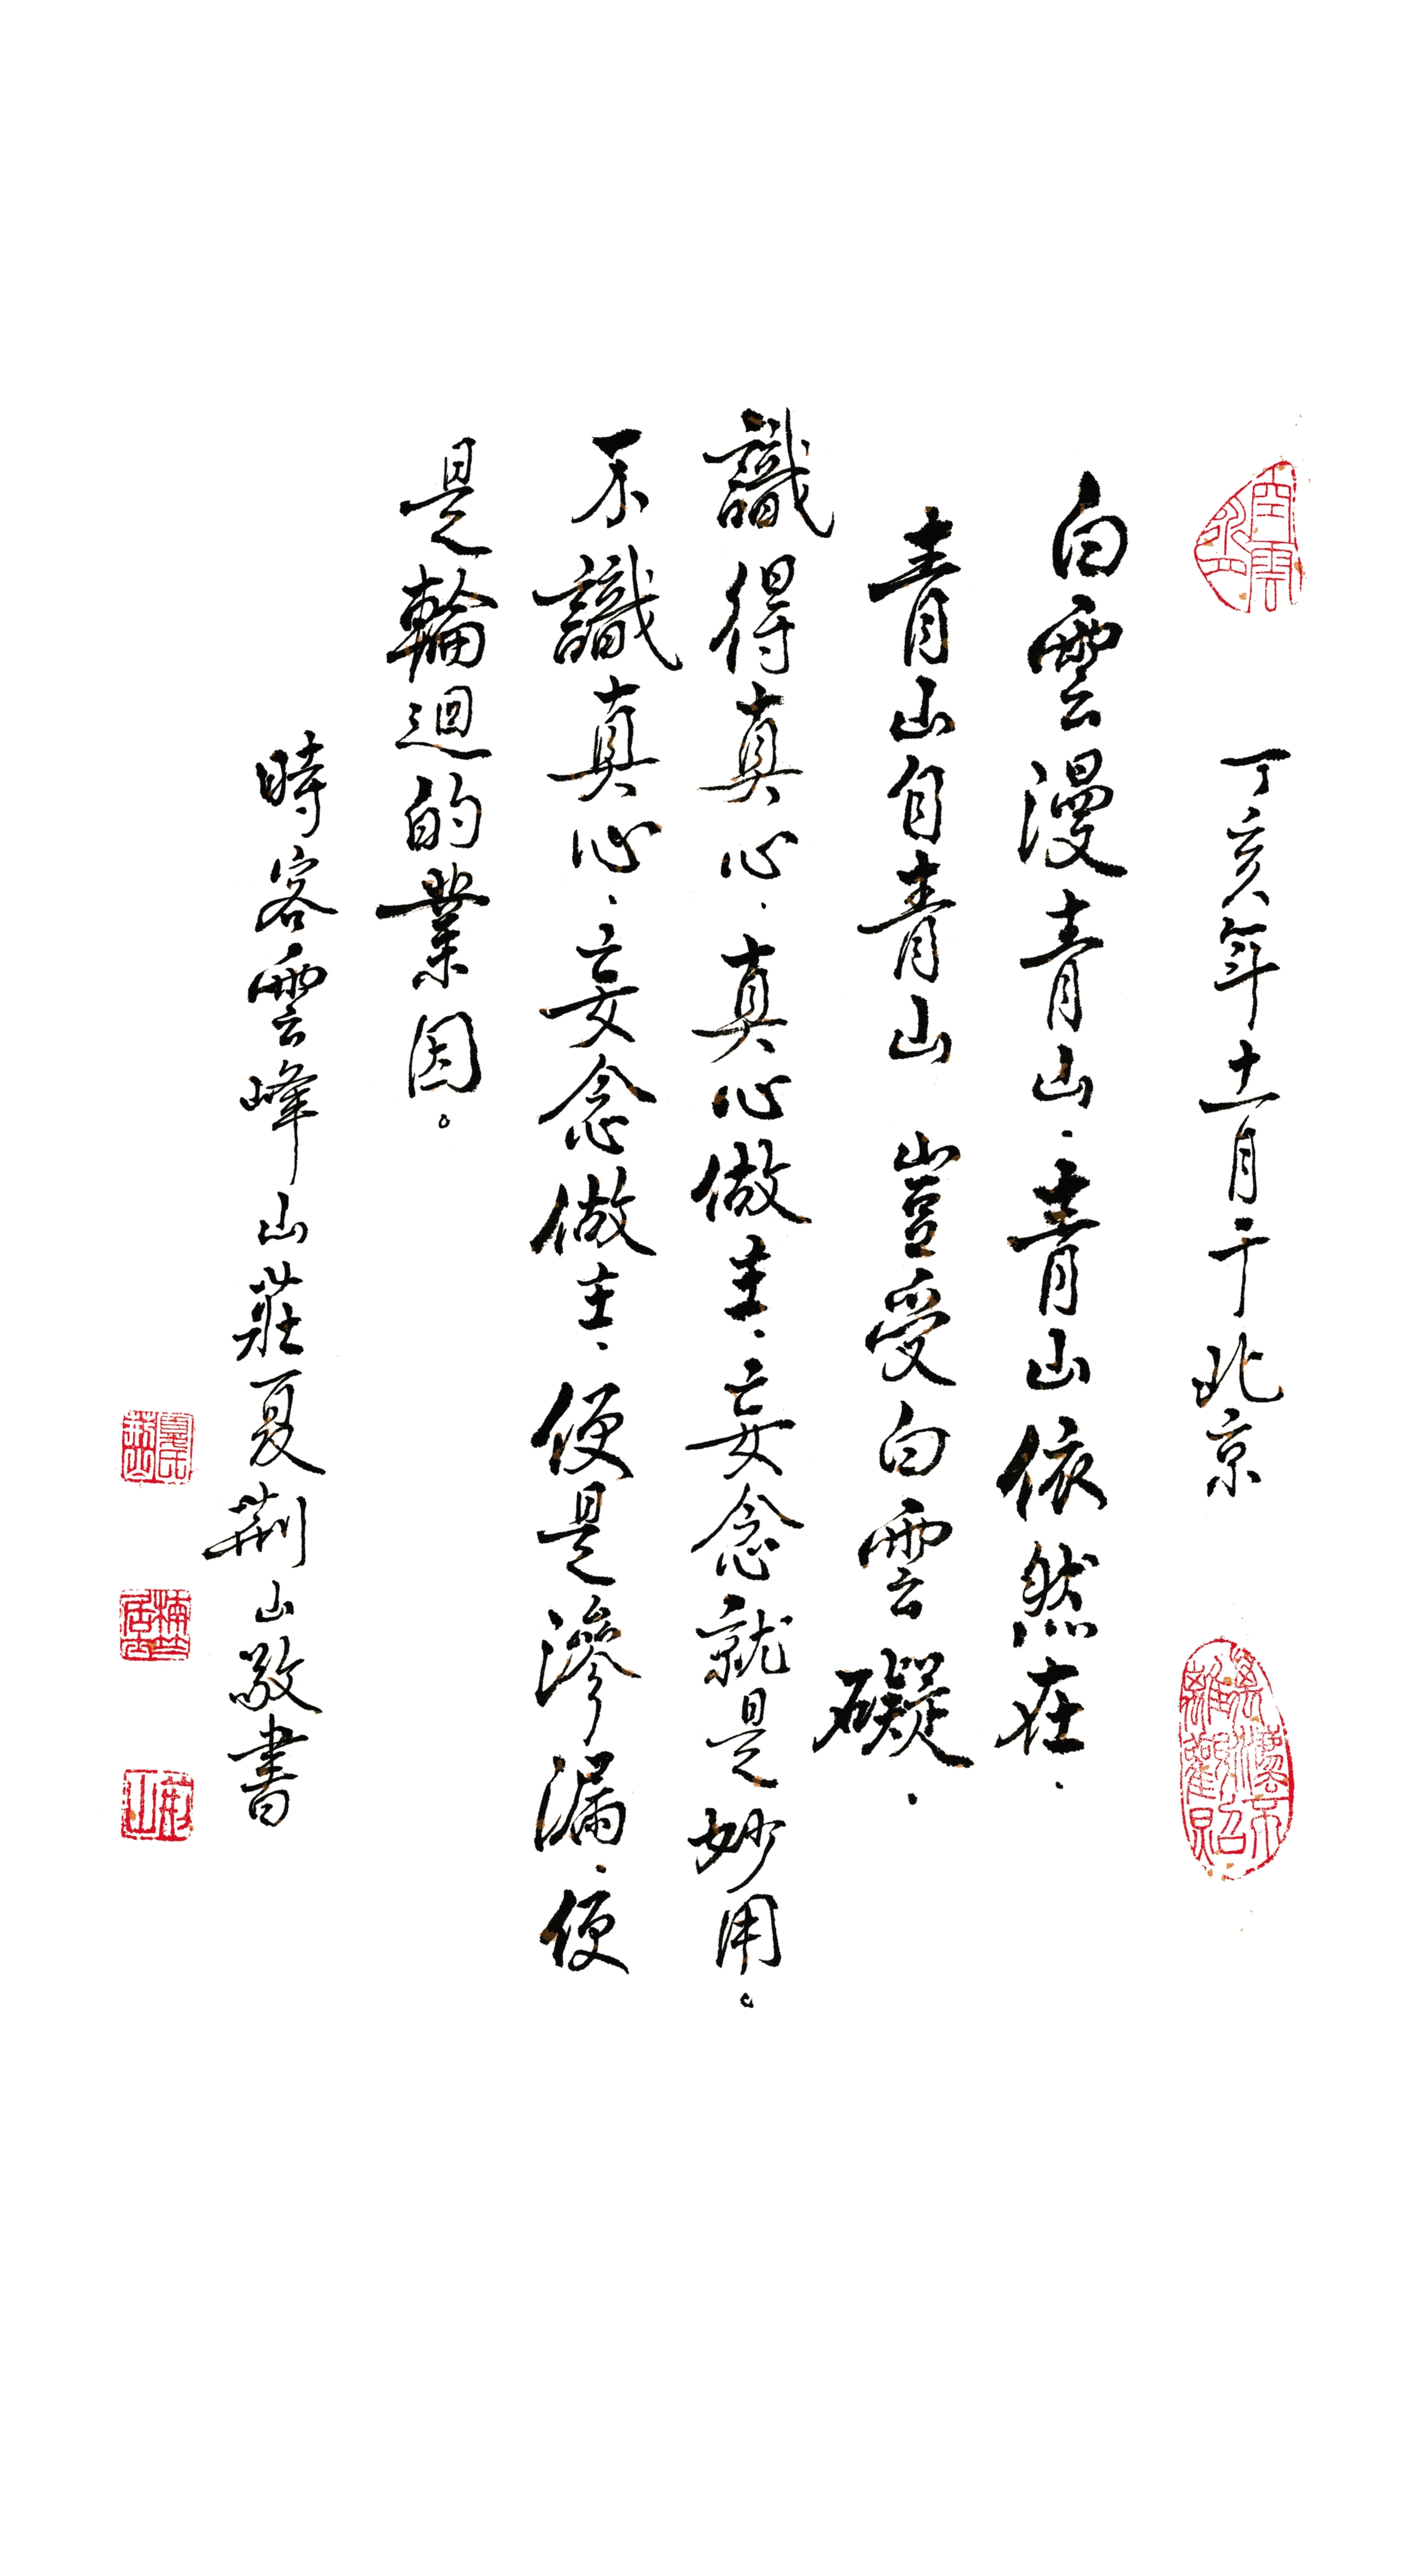 丁亥年十一月于北京
白雲漫青山．青山依然在．
青山自青山　豈受白雲礙．
識得真心．真心做主．妄念就是妙用。
不識真心．妄念做主．便是滲漏．便
是輪迴的業因。
時客雲峰山莊夏荊山敬書
夏氏荊山
荊山